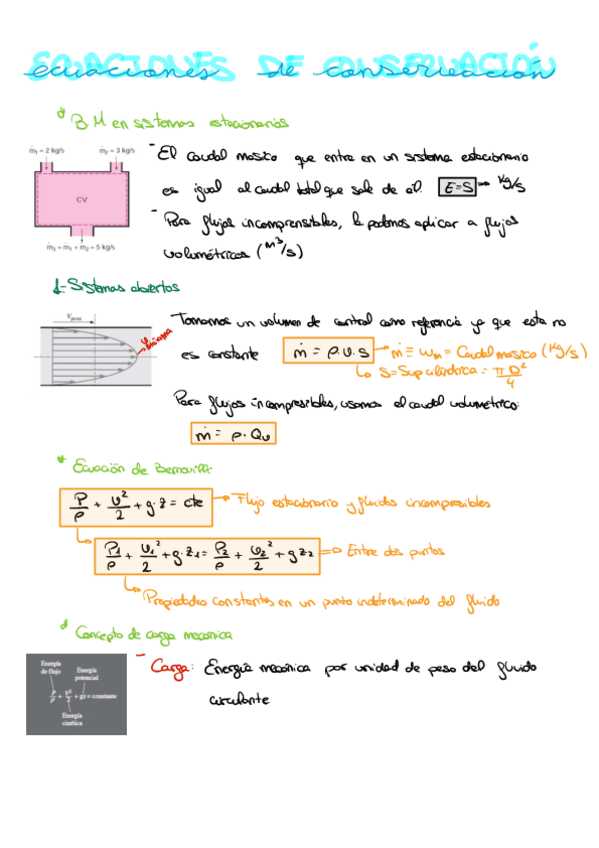 ECUACIONES DE CONSERVACIÓN
ecuaciones de conservación
B.M en sistemas estacionarios
ṁ₁ = 2 kg/s ṁ₂ = 3 kg/s
CV
ṁ₃ = ṁ₁ + ṁ₂ = 5 kg/s
- El caudal masico que entra en un sistema estacionario
es igual al caudal total que sale de él. E=S → kg/s
- Para flujos incomprensibles, lo podemos aplicar a flujos
volumétricos (m³/s)
1.- Sistemas abiertos
Tomamos un volumen de control como referencia ya que esta no
es constante ṁ = ρ.v.s → ṁ ≡ Wm = Caudal masico (kg/s)
↳ S = Sup cilíndrica = πD²/4
Para flujos incompresibles, usamos el caudal volumétrico:
ṁ = ρ·Qv
Ecuación de Bernoulli:
P/ρ + v²/2 + g·z = cte → Flujo estacionario y fluidos incompresibles
P₁/ρ + v₁²/2 + g·z₁ = P₂/ρ + v₂²/2 + g z₂ ⇒ Entre dos puntos
↳ Propiedades constantes en un punto indeterminado del fluido
Concepto de carga mecánica
Energía de flujo
Energía potencial
P/ρ + V²/2 + gz = constante
Energía cinética
- Carga: Energía mecánica por unidad de peso del fluido
circulante